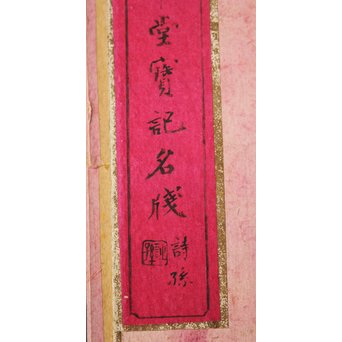 堂寶記名牋
詩孫